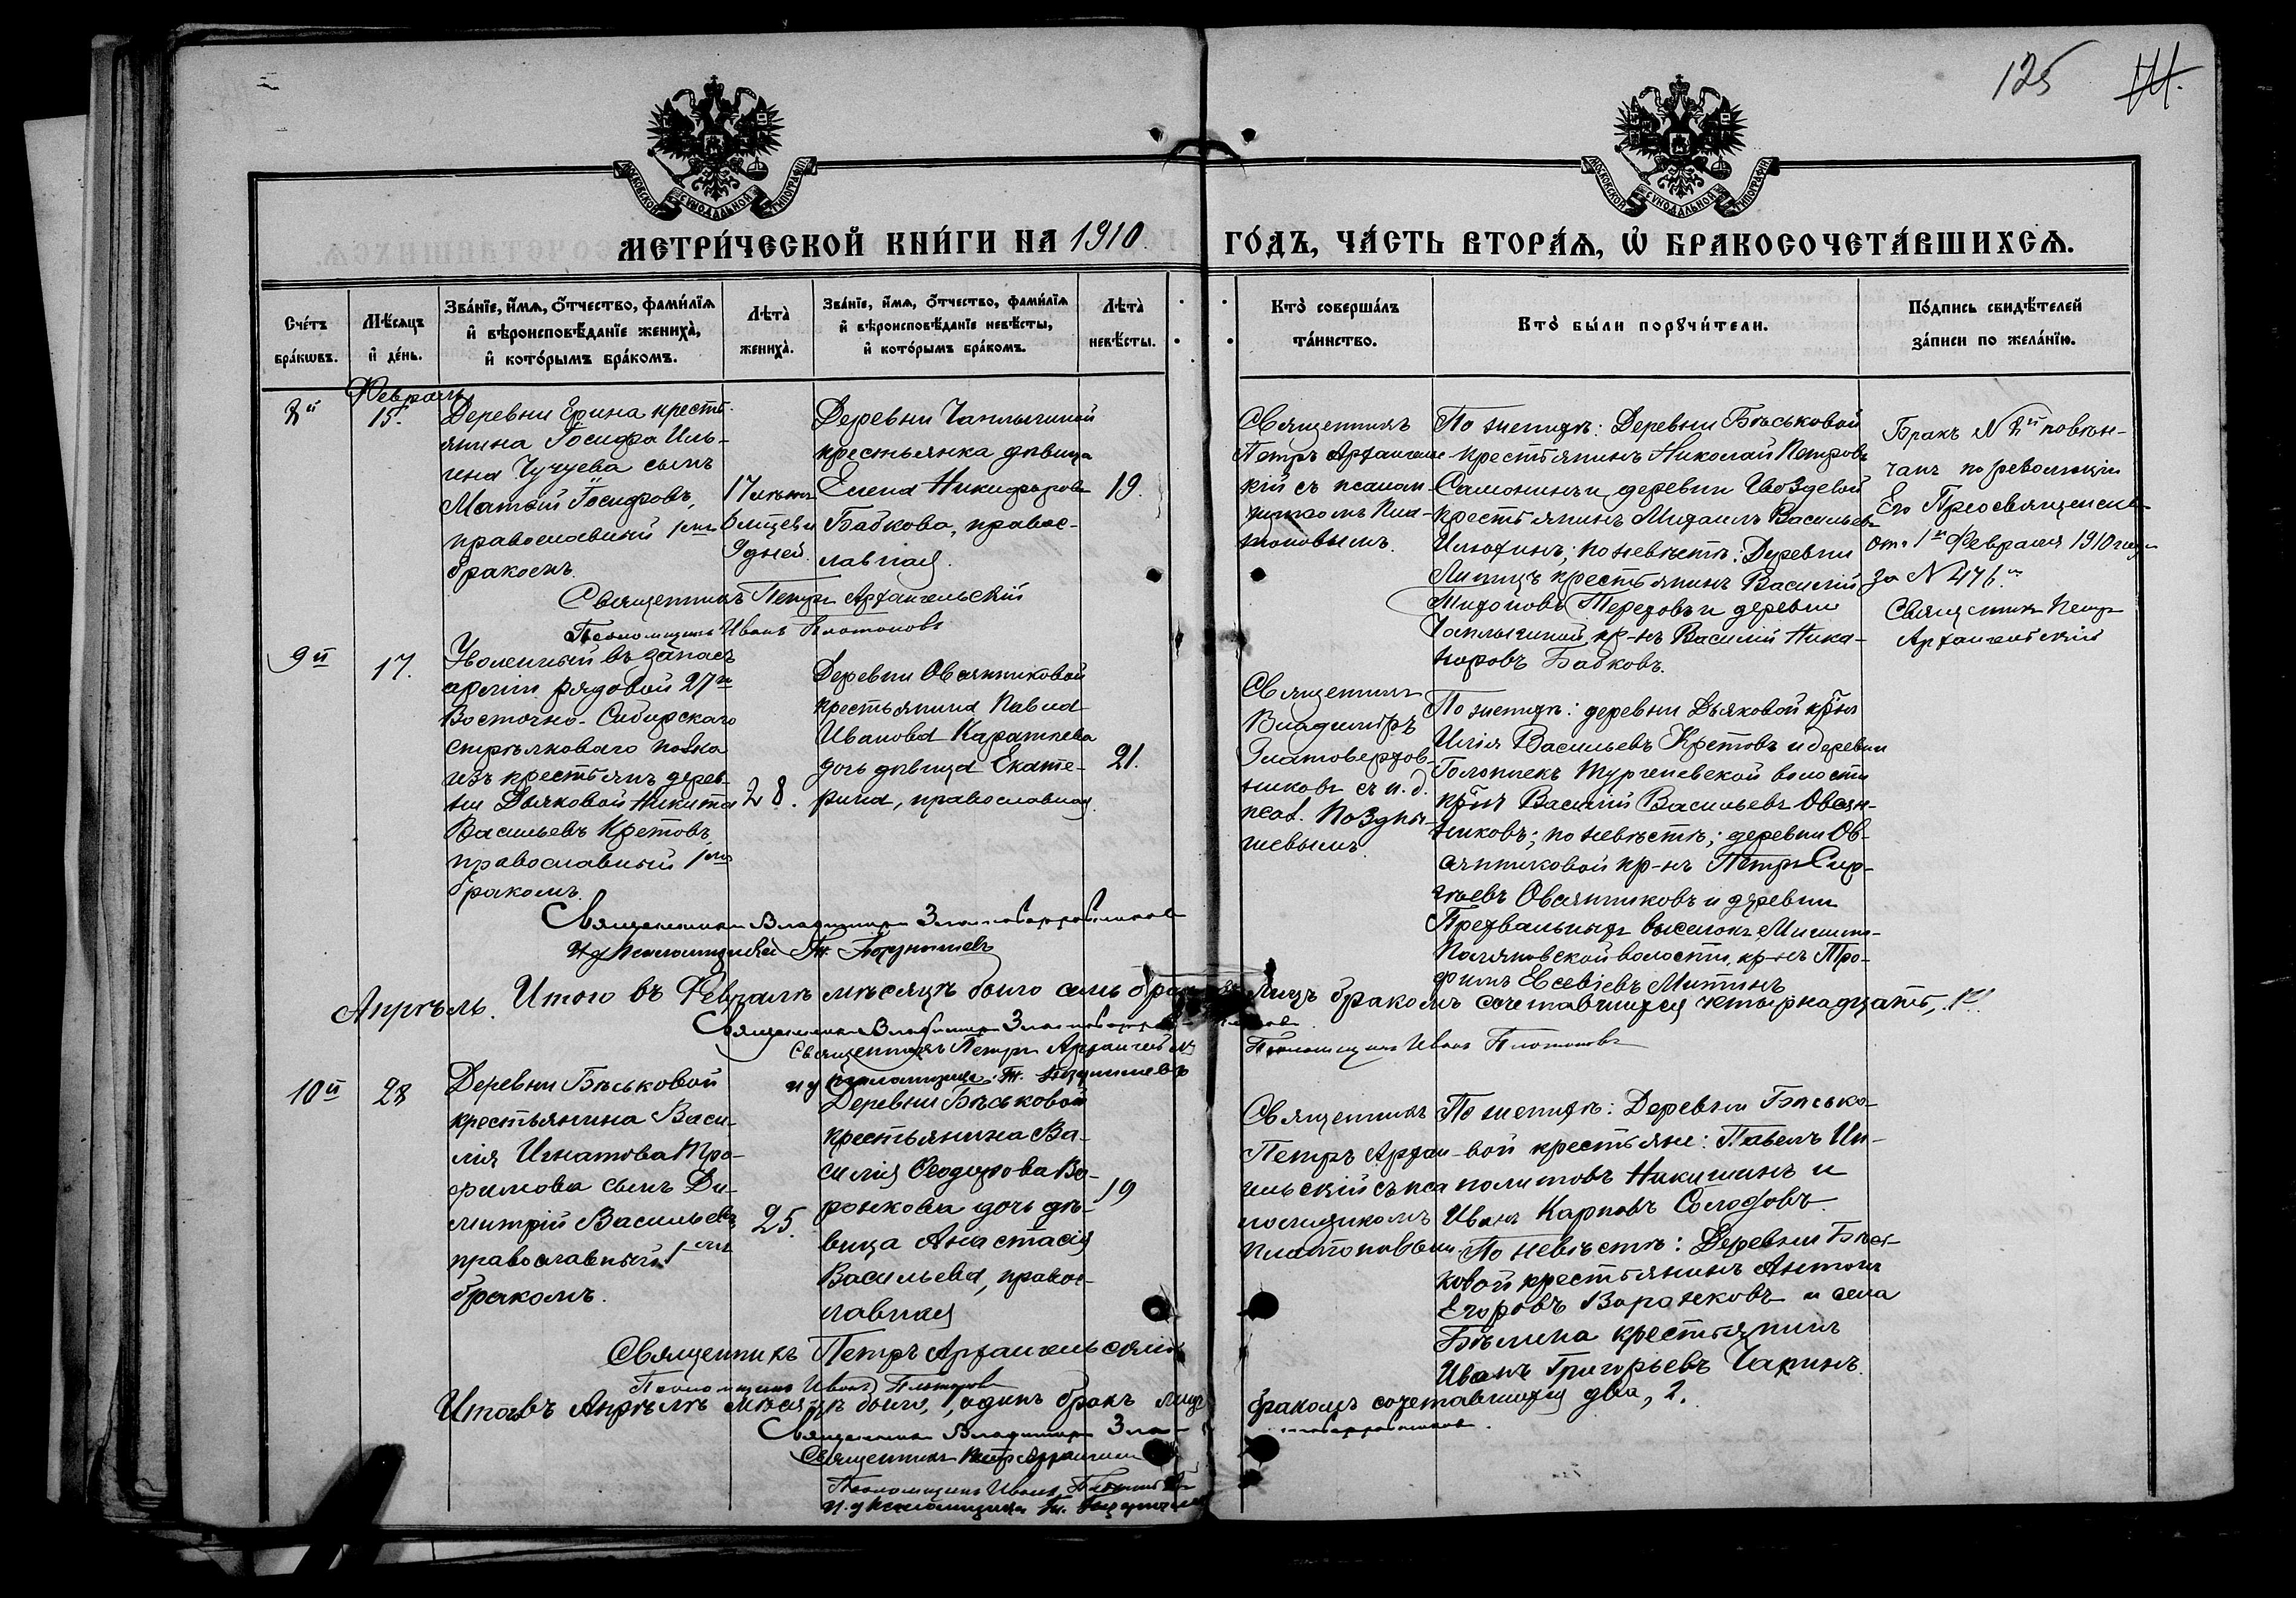 125
МЕТРИ́ЧЕСКОЙ КНИ́ГИ НА 1910.
ГО́ДЪ, ЧА́СТЬ ВТОРА́Ѧ, Ѽ БРАКОСОЧЕТА́ВШИХСѦ.
МОСКОВСКОЙ СѴНОДАЛЬНОЙ ТИПОГРАФІИ
МОСКОВСКОЙ СѴНОДАЛЬНОЙ ТИПОГРАФІИ
Сче́тъ бра́кωвъ.
Мѣ́сѧцъ и҆ де́нь.
Зва́нїе, и҆́мѧ, о҆́тчество, фами́лїѧ
и҆ вѣроисповѣ́данїе жениха̀,
и҆ кото́рымъ бра́комъ.
Лѣта̀ жениха̀.
Зва́нїе, и҆́мѧ, о҆́тчество, фами́лїѧ
и҆ вѣроисповѣ́данїе невѣ́сты,
и҆ кото́рымъ бра́комъ.
Лѣта̀ невѣ́сты.
Кто̀ соверша́лъ та́инство.
Кто̀ бы́ли порꙋчи́тели.
По́дпись свидѣ́телей
за́писи по жела́нїю.
Февраль
8й
15.
Деревни Ерина кресть-
янина Іосифа Иль-
ина Чучуева сынъ
Матѳій Іосифовъ,
православный 1мъ
бракомъ.
17 лѣтъ
6 мѣсяцевъ
9 дней.
Деревни Чаплыгиной
крестьянка дѣвица
Елена Никифорова
Бабкова, правос-
лавная.
19.
Священникъ
Петръ Архангельс-
кій съ псалом-
щикомъ Пла-
тоновымъ.
По женихѣ: Деревни Бѣськовой
крестьянинъ Николай Петровъ
Самонинъ и деревни Гвоздевой
крестьянинъ Михаилъ Васильевъ
Илюхинъ; по невѣстѣ: Деревни
Липицъ крестьянинъ Василій
Тереховъ и деревни
Чаплыгиной кр-нъ Василій Ника-
норовъ Бабковъ.
Бракъ № 8й повѣн-
чанъ по резолюціи
Его Преосвященства
отъ 1го Февраля 1910 года
за № 476.мъ
Священникъ Петръ
Архангельскій
Священникъ Петръ Архангельскій
Псаломщикъ Иванъ Платоновъ
9й
17.
Уволенный въ запасъ
арміи рядовой 27го
Восточно-Сибирскаго
стрѣлковаго полка
изъ крестьянъ дерев-
ни Дьяковой Никита
Васильевъ Кретовъ
православный 1мъ
бракомъ.
28.
Деревни Овсянниковой
крестьянина Павла
Иванова Каратѣева
дочь дѣвица Екате-
рина, православная.
21.
Священникъ
Владиміръ
Златоверхов-
никовъ съ и. д.
псал. Поздны-
шевымъ.
По женихѣ: деревни Дьяковой кр-нъ
Илія Васильевъ Кретовъ и деревни
Голопнекъ Тургеневской волости
кр-нъ Василій Васильевъ Овсян-
никовъ; по невѣстѣ; деревни Ов-
сянниковой кр-нъ Петръ Сер-
гѣевъ Овсянниковъ и деревни
выселокъ Мишино-
Поляновской волости, кр-нъ Тро-
фимъ Евсевіевъ Митинъ
Священникъ Владиміръ Златоверховниковъ
и д псаломщика Т. Позднышевъ
Итого въ Февралѣ мѣсяцѣ было семь браковъ лицъ бракомъ сочетавшихся четырнадцать, 14.
Священникъ Владиміръ Златоверховниковъ
Священникъ Петръ Архангельскій
Псаломщикъ Иванъ Платоновъ
и д псаломщика: Т. Позднышевъ
Апрѣль.
10й
28
Деревни Бѣськовой
крестьянина Васи-
лія Игнатова Тро-
фимова сынъ Ди-
митрій Васильевъ
православный 1мъ
бракомъ.
25.
Деревни Бѣськовой
крестьянина Ва-
силія Ѳеодорова Во-
ронкова дочь дѣ-
вица Анастасія
Васильева, правос-
лавная
19
Священникъ
Петръ Архан-
гельскій съ пса
ломщикомъ
Платоновымъ
По женихѣ: Деревни Бѣсько-
вой крестьяне: Павелъ Ип-
политовъ Никишинъ и
Иванъ Карповъ Солодовъ.
По невѣстѣ: Деревни Бѣсь-
ковой крестьянинъ Антонъ
Егоровъ Воронковъ и села
Бѣлина крестьянинъ
Иванъ Григорьевъ Чаринъ.
Священникъ Петръ Архангельскій
Псаломщикъ Иванъ Платоновъ
Итого въ Апрѣлѣ мѣсяцѣ было, 1, одинъ бракъ лицъ бракомъ сочетавшихся два, 2.
Священникъ Владиміръ Златоверховниковъ.
Священникъ Петръ Архангельскій
Псаломщикъ Иванъ Платоновъ
и. д псаломщика Т. Позднышевъ